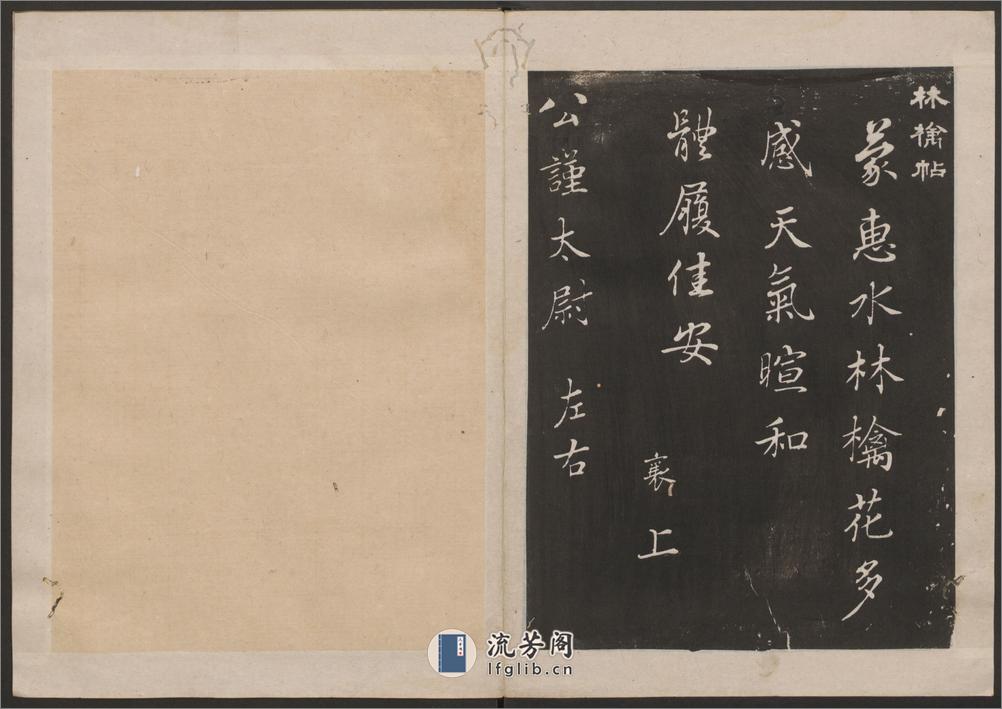 林檎帖
蒙惠水林檎花多
感天氣暄和
體履佳安
襄上
公謹太尉 左右
流芳阁
lfglib.cn